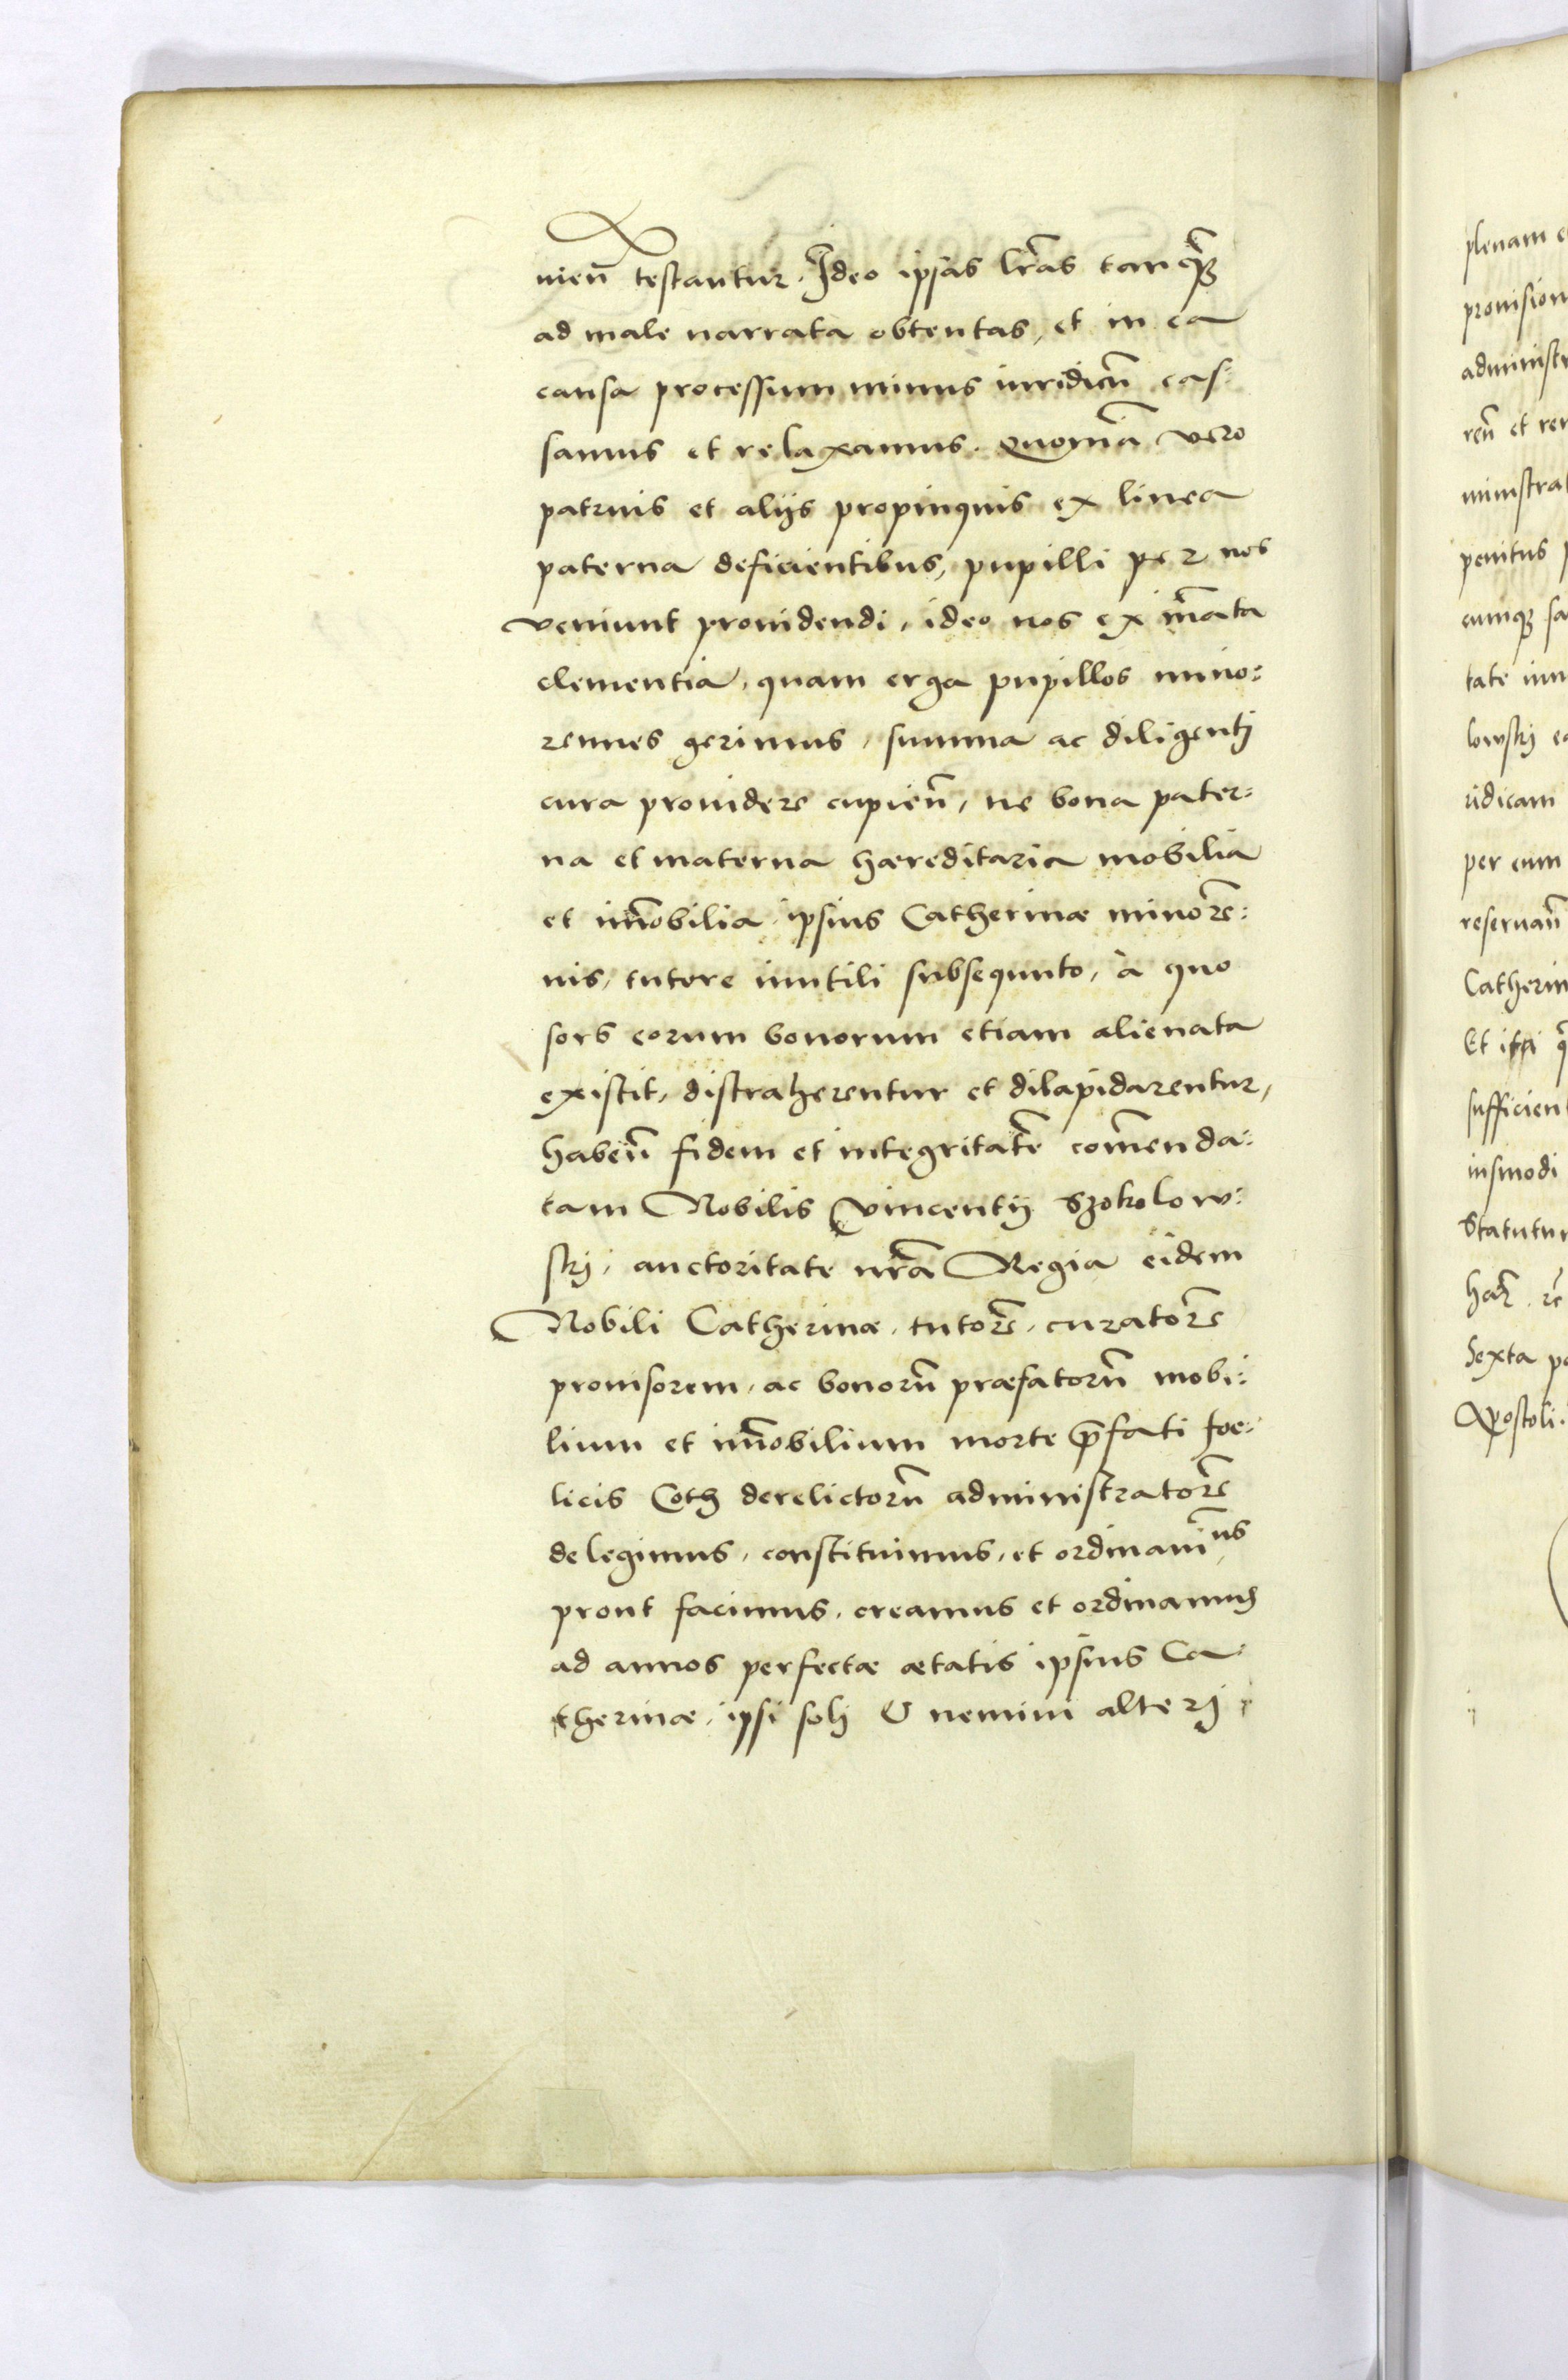 nień testantur. Ideo ipsas lr̃as tanq̃ꝫ
ad male narrata obtentas, et in ea
causa processum minus iuridicũ cas:
samus et relaxamus. Quoniã vero
patruis et alijs propinquis ex linea
paterna deficientibus, pupilli per nos
veniunt prouidendi, ideo nos ex in̄ata
clementia, quam erga pupillos mino:
rennes gerimus, summa ac diligentj
cura prouidere cupień, ne bona pater:
na et materna hæreditaria mobilia
et im̄obilia ipsius Catherinæ minore:
nis, tutore inutili subsequuto, a quo
sors eorum bonorum etiam alienata
existit, distraherentur et dilapidarentur,
habeń fidem et integritatẽ com̄enda:
tam Nobilis Vincentij Szokolow:
skj, auctoritate nr̃a Regia eidem
Nobili Catherinæ, tutorẽ, curatorẽ
prouisorem, ac bonorũ præfatorũ mobi:
lium et im̄obilium morte p̃fati foe:
licis Coth derelictorũ administratorẽ
delegimus, constituimus, et ordinauimus
prout facimus, creamus et ordinamus
ad annos perfectæ ætatis ipsius Ca:
therinæ, ipsi solj & nemini alterj
plenam
prouision
administr
reń et rer
ministrat
penitus
cumqꝫ sa
tate
lowskj
ridicam
per eum
reseruań
Catherin
Et
sufficien
iusmodi
Statutu
Sexta
Apostoli.